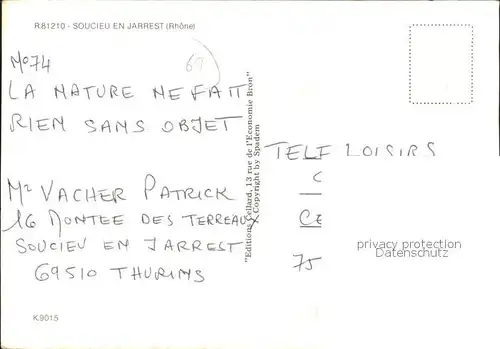 R81210 - SOUCIEU EN JARREST (Rhône)
69
No 74
LA NATURE NE FAIT
RIEN SANS OBJET
Mr VACHER PATRICK
16 MONTEE DES TERREAUX
SOUCIEU EN JARREST
69510 THURINS
K.9015
"Editions Cellard, 13 rue de l'Economie Bron"
Copyright by Spadem
TELE LOISIRS
C
CE
75
privacy protection
Datenschutz